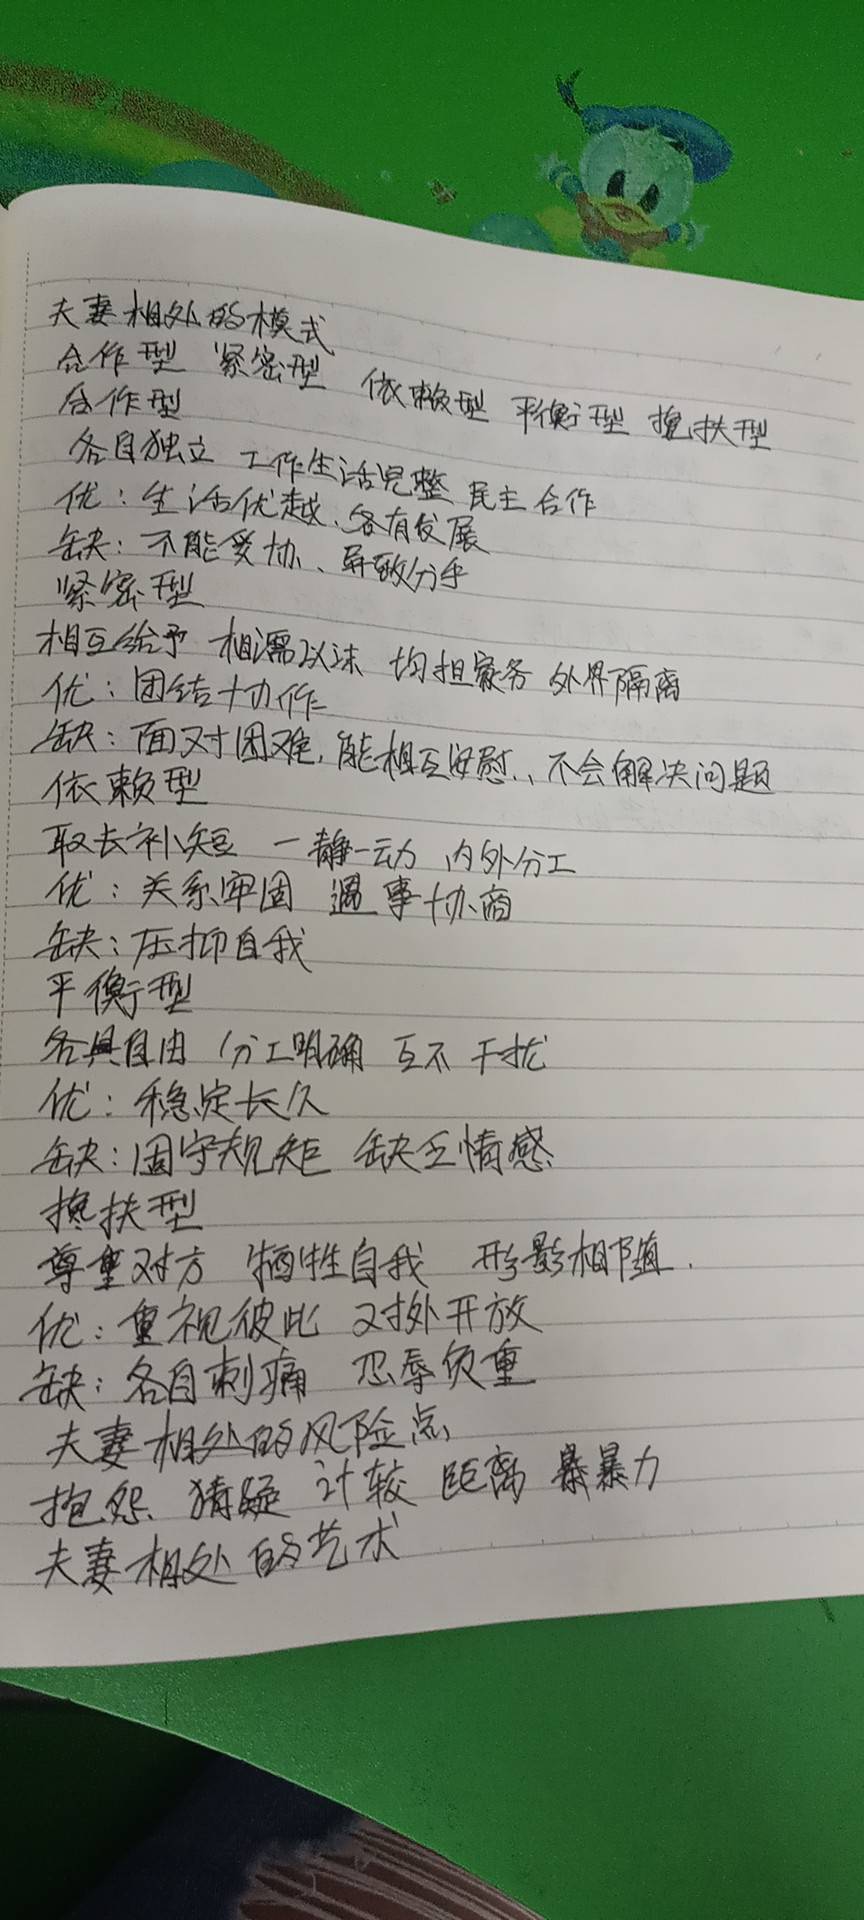 夫妻相处的模式
合作型 紧密型 依赖型 平衡型 搀扶型
合作型
各自独立 工作生活完整 民主合作
优：生活优越、各有发展
缺：不能妥协、导致分手
紧密型
相互给予 相濡以沫 均担家务 外界隔离
优：团结协作
缺：面对困难，能相互安慰、不会解决问题
依赖型
取长补短 一静一动 内外分工
优：关系牢固 遇事协商
缺：压抑自我
平衡型
各具自由 分工明确 互不干扰
优：稳定长久
缺：固守规矩 缺乏情感
搀扶型
尊重对方 牺牲自我 形影相随.
优：重视彼此 对外开放
缺：各自刺痛 忍辱负重
夫妻相处的风险点
抱怨 猜疑 计较 距离 暴暴力
夫妻相处的艺术